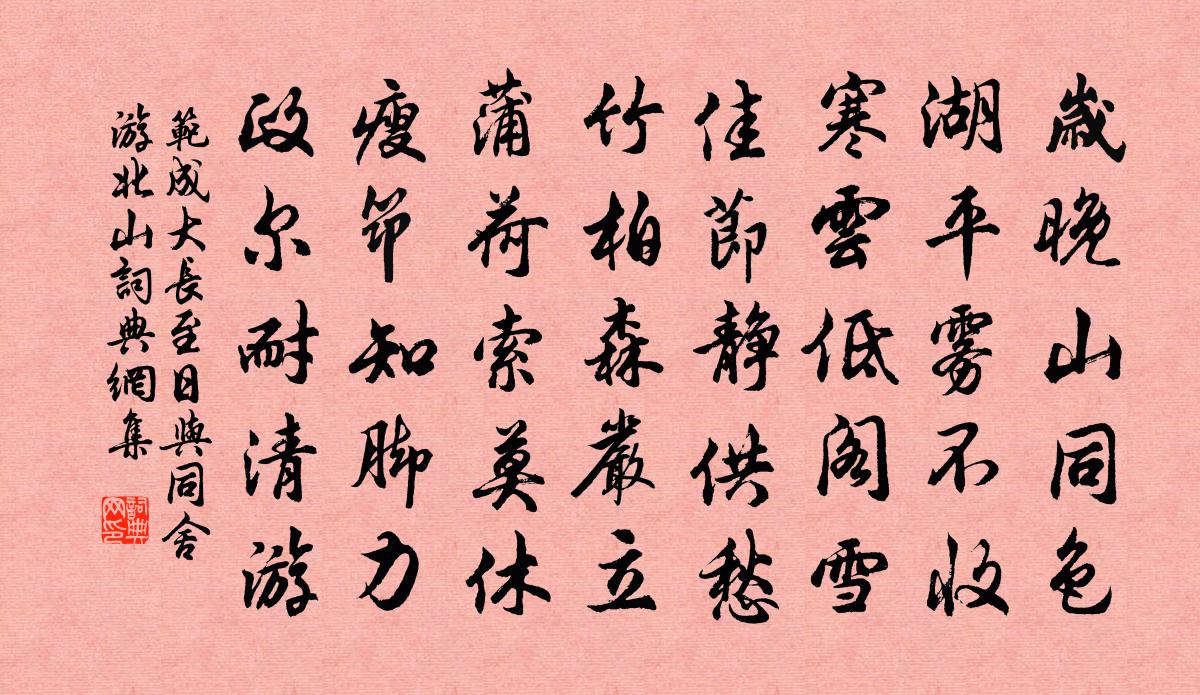 歲晚山同色
湖平雾不收
寒雲低阁雪
佳節静供愁
竹柏森嚴立
蒲荷索莫休
瘦筇知脚力
政尔耐清游
範成大長至日與同舍
游北山詞典網集
詞典
网印